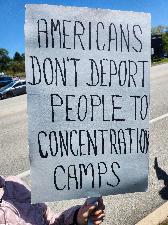 AMERICANS
DON'T DEPORT
PEOPLE TO
CONCENTRATION
CAMPS